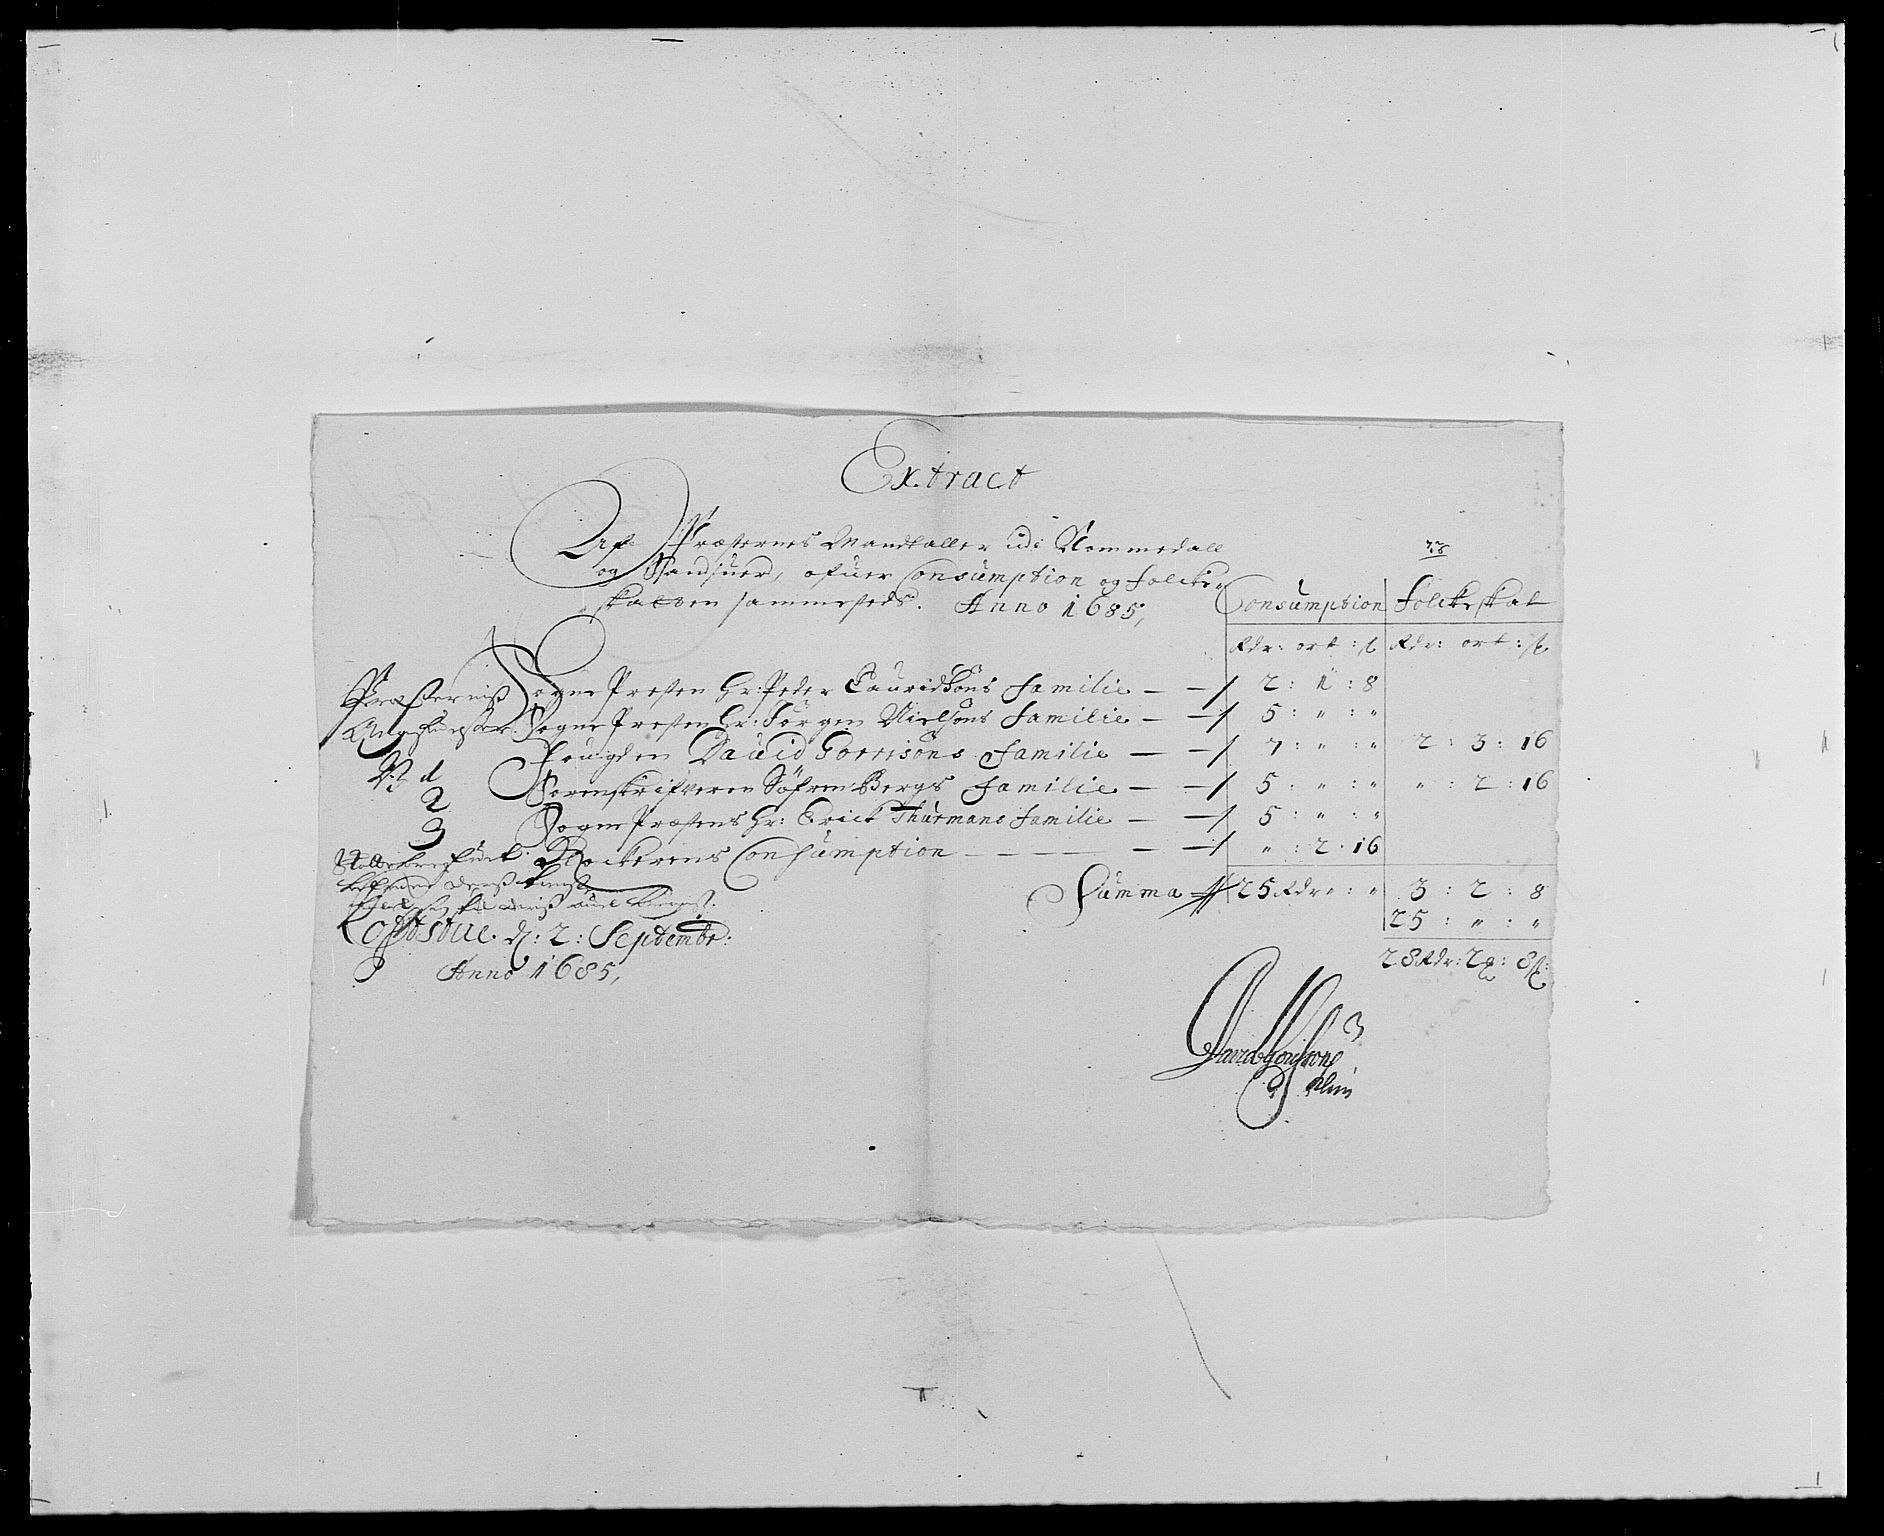 Extract
Af Præsternes Mandtaller udi Nommedall
og Sandsuer, ofuer Consumption og folcke-
skatten sammesteds. Anno 1685,
Consumption Folckeskat
Rdr: ort : ß Rdr: ort : ß
Præsterniß Sogne Presten Hr: Peder Lauridsöns familie — —/ 2 : 1 : 8
Sogne Presten Hr: Jörgen Nielsöns familie — —/ 5 : " : "
fougden Dauid Gorrisöns familie — —/ 7 : " : " 2 : 3 : 16
No 1 Sorenskrifveren Söfren Bergs familie — —/ 5 : " : " " : 2 : 16
2
3 Sogne Præstens Hr: Erick Thurmans familie — —/ 5 : " : "
Klockerens Consumption — — — —/ " : 2 : 16
Summa 25 Rdr " : " 3 : 2 : 8
25 : " : "
28 Rdr: 2 : 8 ß:
Loftstue d: 2: Septembr:
Anno 1685,
David Gorisöns